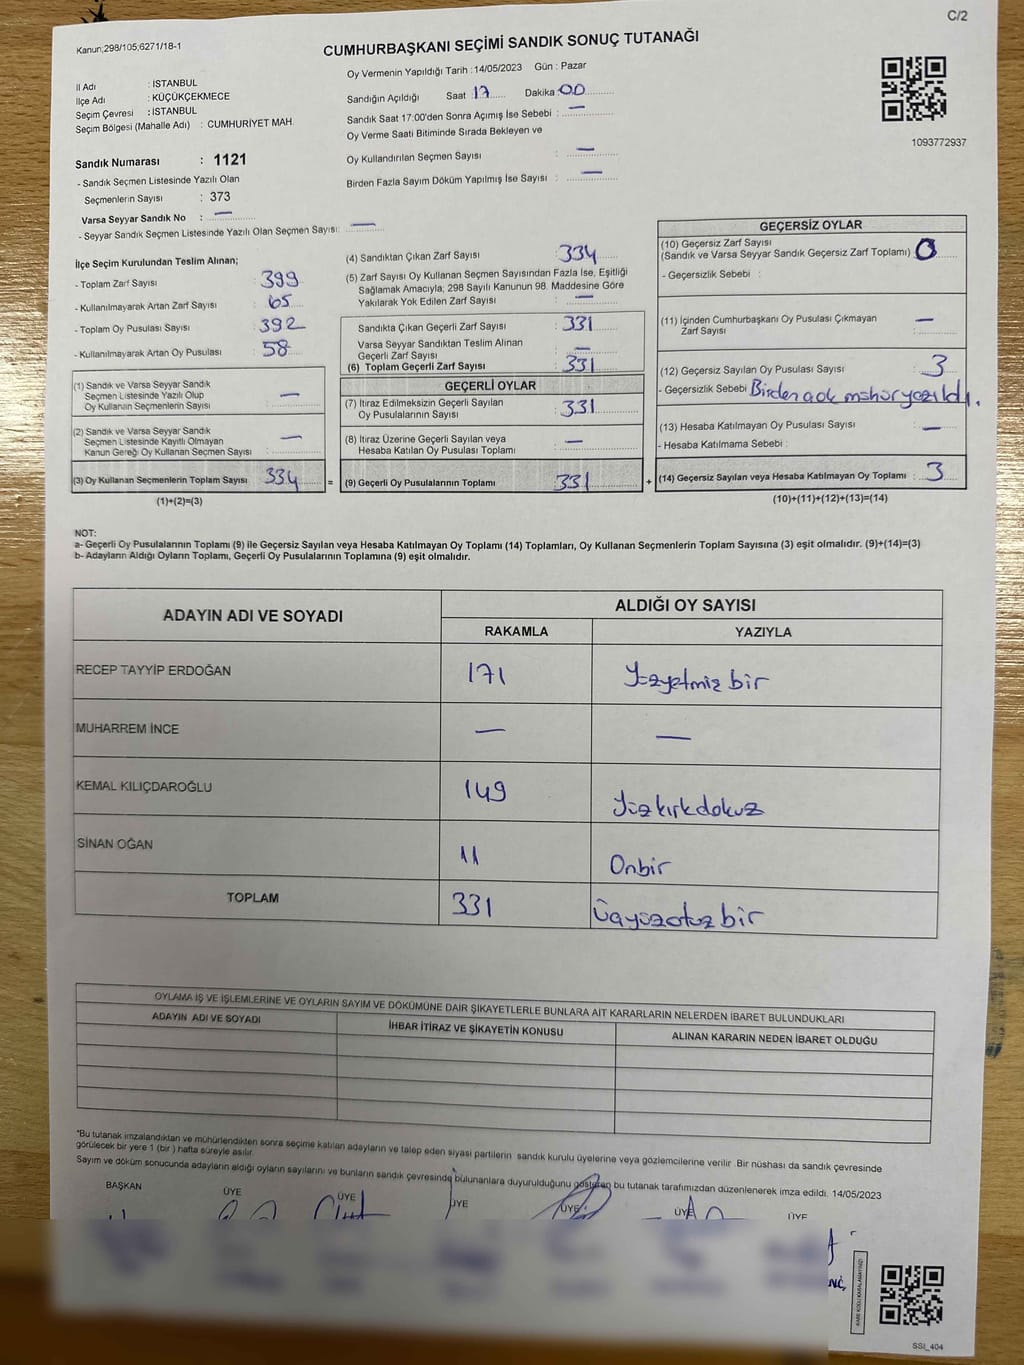 C/2
Kanun;298/105;6271/18-1
CUMHURBAŞKANI SEÇİMİ SANDIK SONUÇ TUTANAĞI
İl Adı : İSTANBUL
İlçe Adı : KÜÇÜKÇEKMECE
Seçim Çevresi : İSTANBUL
Seçim Bölgesi (Mahalle Adı) : CUMHURİYET MAH.
Oy Vermenin Yapıldığı Tarih :14/05/2023 Gün : Pazar
Sandığın Açıldığı Saat 17 Dakika :00
Sandık Saat 17:00'den Sonra Açımış İse Sebebi : —
Oy Verme Saati Bitiminde Sırada Bekleyen ve
Oy Kullandırılan Seçmen Sayısı : —
Birden Fazla Sayım Döküm Yapılmış İse Sayısı : —
1093772937
Sandık Numarası : 1121
- Sandık Seçmen Listesinde Yazılı Olan
Seçmenlerin Sayısı : 373
Varsa Seyyar Sandık No : —
- Seyyar Sandık Seçmen Listesinde Yazılı Olan Seçmen Sayısı: —
İlçe Seçim Kurulundan Teslim Alınan;
- Toplam Zarf Sayısı : 399
- Kullanılmayarak Artan Zarf Sayısı : 65
- Toplam Oy Pusulası Sayısı : 392
- Kullanılmayarak Artan Oy Pusulası : 58
(1) Sandık ve Varsa Seyyar Sandık
Seçmen Listesinde Yazılı Olup
Oy Kullanan Seçmenlerin Sayısı : —
(2) Sandık ve Varsa Seyyar Sandık
Seçmen Listesinde Kayıtlı Olmayan
Kanun Gereği Oy Kullanan Seçmen Sayısı : —
(3) Oy Kullanan Seçmenlerin Toplam Sayısı : 334
(1)+(2)=(3)
=
(4) Sandıktan Çıkan Zarf Sayısı : 334
(5) Zarf Sayısı Oy Kullanan Seçmen Sayısından Fazla İse, Eşitliği
Sağlamak Amacıyla; 298 Sayılı Kanunun 98. Maddesine Göre
Yakılarak Yok Edilen Zarf Sayısı : —
Sandıkta Çıkan Geçerli Zarf Sayısı : 331
Varsa Seyyar Sandıktan Teslim Alınan
Geçerli Zarf Sayısı : —
(6) Toplam Geçerli Zarf Sayısı : 331
GEÇERLİ OYLAR
(7) İtiraz Edilmeksizin Geçerli Sayılan
Oy Pusulalarının Sayısı : 331
(8) İtiraz Üzerine Geçerli Sayılan veya
Hesaba Katılan Oy Pusulası Toplamı : —
(9) Geçerli Oy Pusulalarının Toplamı : 331
+
GEÇERSİZ OYLAR
(10) Geçersiz Zarf Sayısı
(Sandık ve Varsa Seyyar Sandık Geçersiz Zarf Toplamı) : 0
- Geçersizlik Sebebi :
(11) İçinden Cumhurbaşkanı Oy Pusulası Çıkmayan
Zarf Sayısı : —
(12) Geçersiz Sayılan Oy Pusulası Sayısı : 3
- Geçersizlik Sebebi
(13) Hesaba Katılmayan Oy Pusulası Sayısı : —
- Hesaba Katılmama Sebebi :
(14) Geçersiz Sayılan veya Hesaba Katılmayan Oy Toplamı : 3
(10)+(11)+(12)+(13)=(14)
NOT:
a- Geçerli Oy Pusulalarının Toplamı (9) ile Geçersiz Sayılan veya Hesaba Katılmayan Oy Toplamı (14) Toplamları, Oy Kullanan Seçmenlerin Toplam Sayısına (3) eşit olmalıdır. (9)+(14)=(3)
b- Adayların Aldığı Oyların Toplamı, Geçerli Oy Pusulalarının Toplamına (9) eşit olmalıdır.
ADAYIN ADI VE SOYADI
ALDIĞI OY SAYISI
RAKAMLA YAZIYLA
RECEP TAYYİP ERDOĞAN 171 Yüzyetmiz bir
MUHARREM İNCE — —
KEMAL KILIÇDAROĞLU 149 Yüzkırkdokuz
SİNAN OĞAN 11 Onbir
TOPLAM 331 Üçyüzotuz bir
OYLAMA İŞ VE İŞLEMLERİNE VE OYLARIN SAYIM VE DÖKÜMÜNE DAİR ŞİKAYETLERLE BUNLARA AİT KARARLARIN NELERDEN İBARET BULUNDUKLARI
ADAYIN ADI VE SOYADI İHBAR İTİRAZ VE ŞİKAYETİN KONUSU ALINAN KARARIN NEDEN İBARET OLDUĞU
*Bu tutanak imzalandıktan ve mühürlendikten sonra seçime katılan adayların ve talep eden siyasi partilerin sandık kurulu üyelerine veya gözlemcilerine verilir. Bir nüshası da sandık çevresinde
görülecek bir yere 1 (bir ) hafta süreyle asılır.
Sayım ve döküm sonucunda adayların aldığı oyların sayılarını ve bunların sandık çevresinde bulunanlara duyurulduğunu gösteren bu tutanak tarafımızdan düzenlenerek imza edildi. 14/05/2023
BAŞKAN ÜYE ÜYE ÜYE ÜYE ÜYE ÜYE
SSI_404